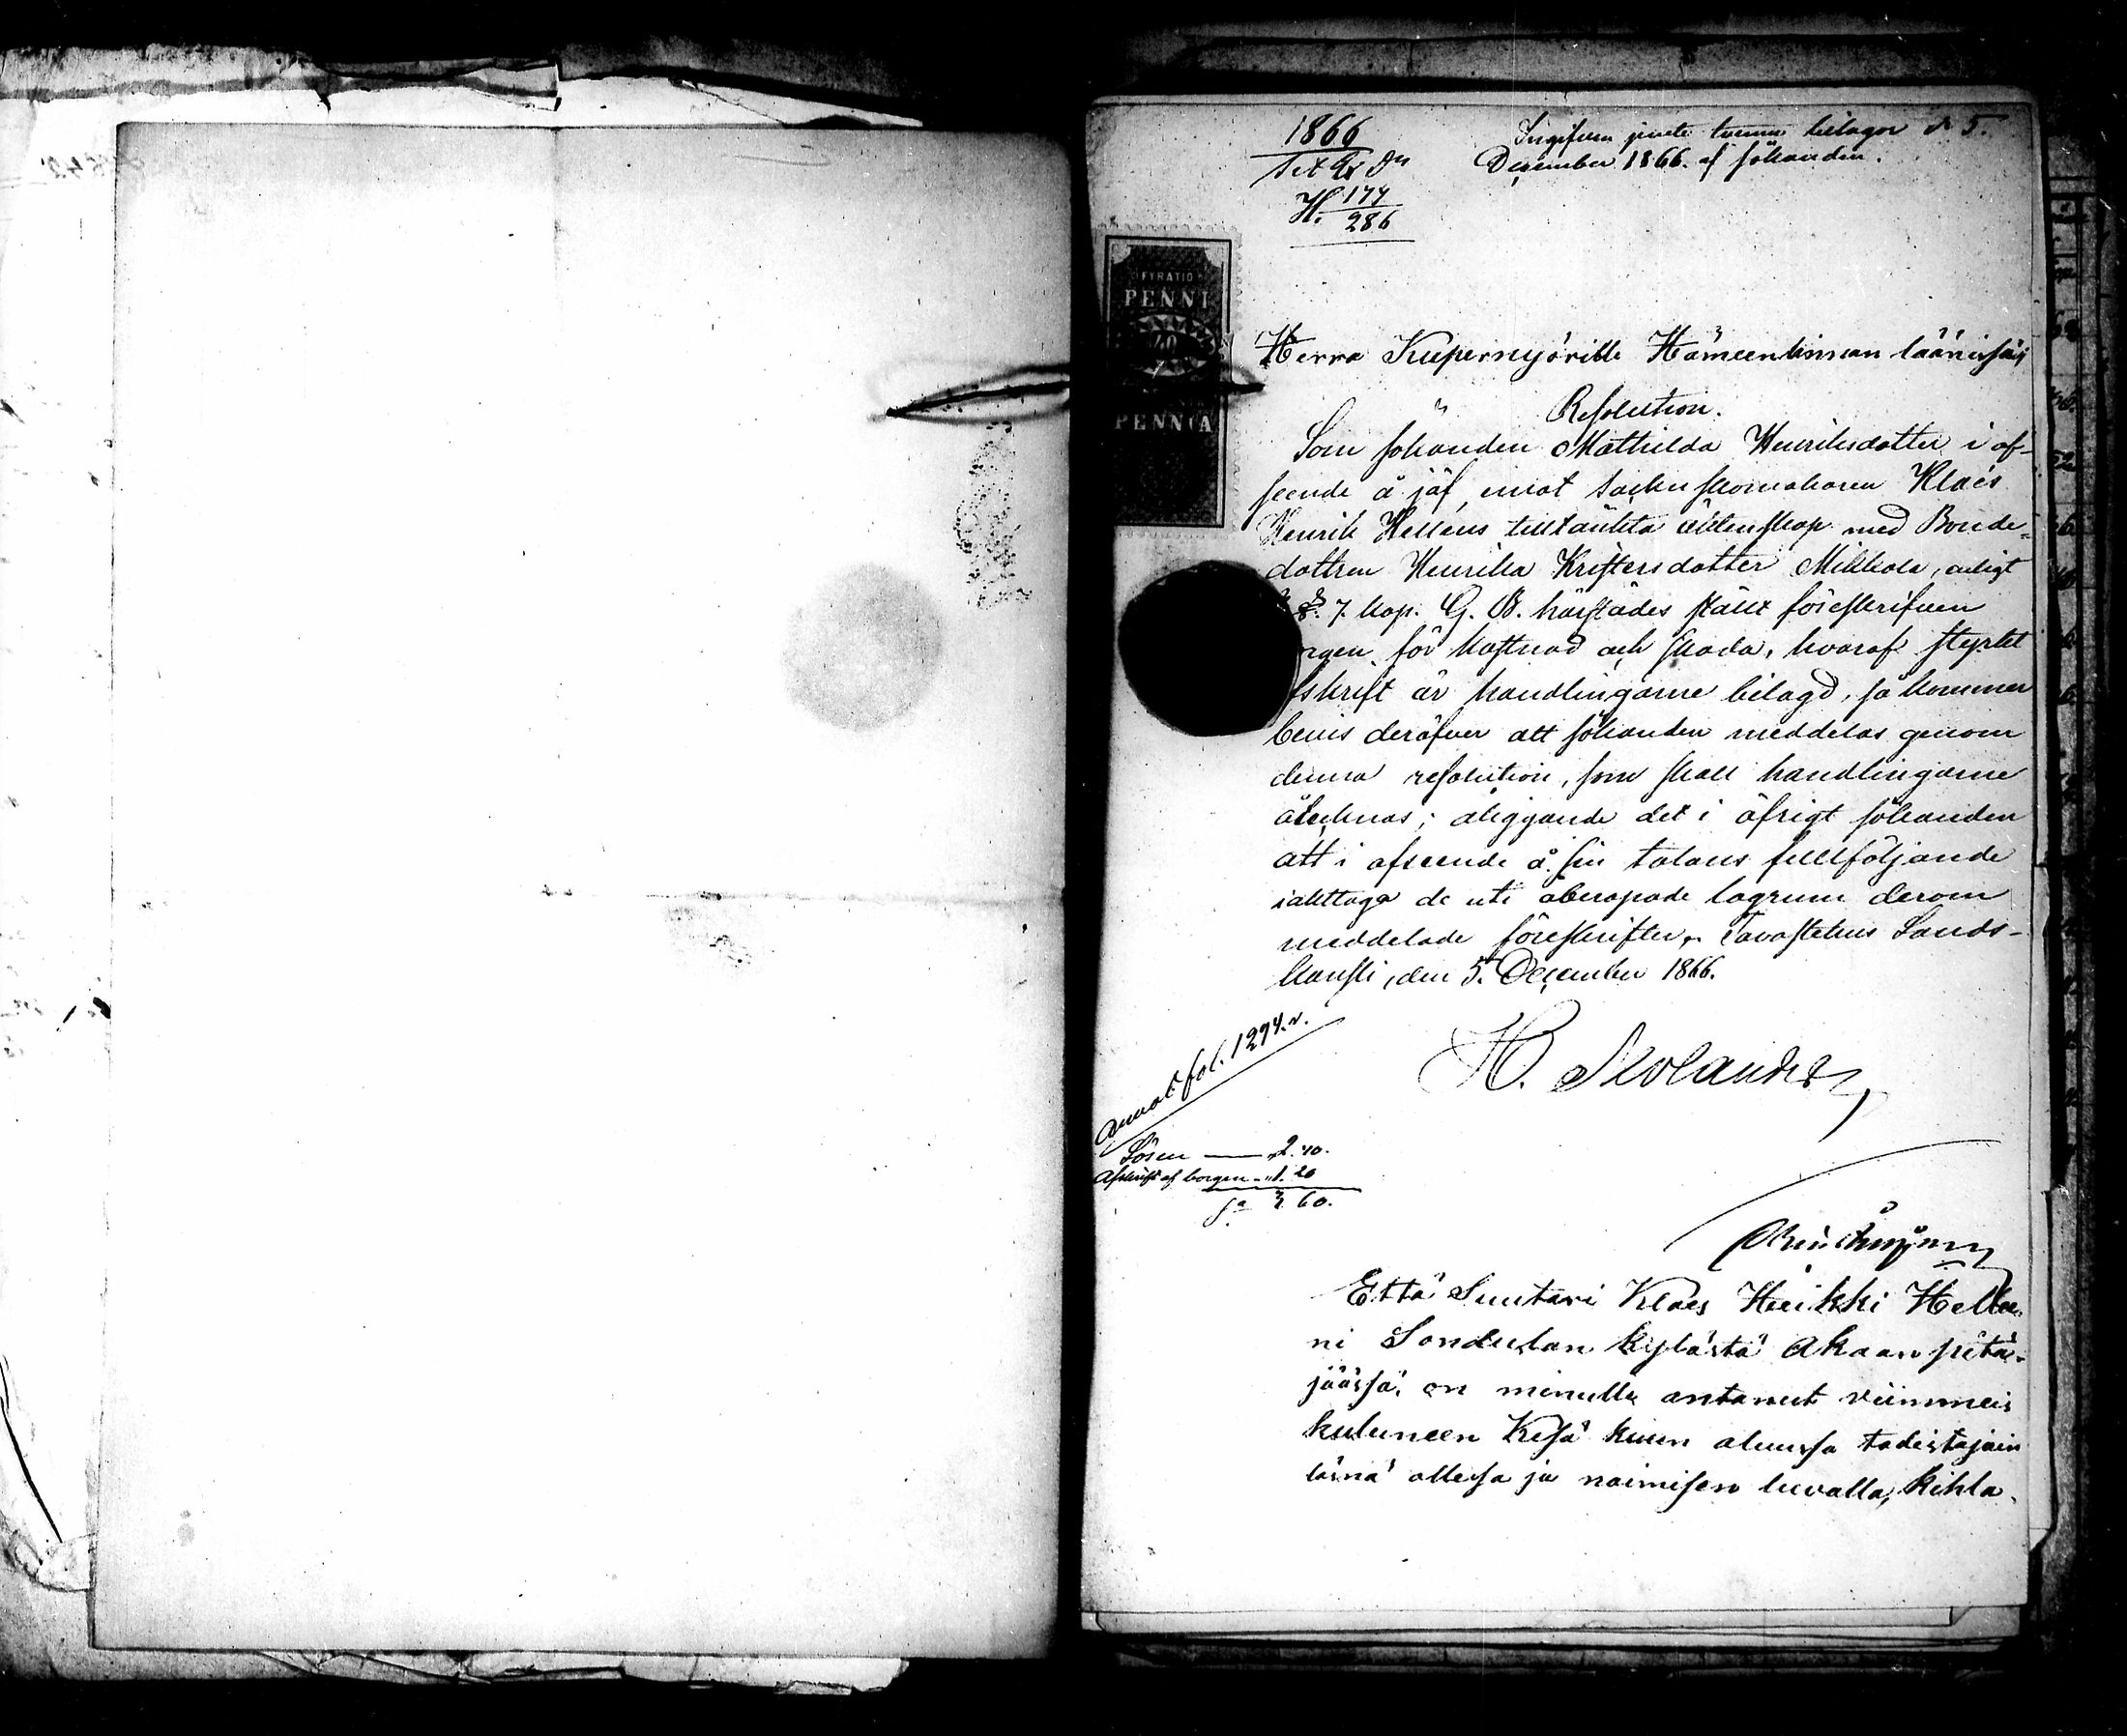 1866
H. 177
286
Ingifven jemte tvenne bilagor d. 5.
December 1866. af sökanden.
FYRATIO
PENNI
40
PENNIÄ
Herra Kupernyörille Hämeenlinnan läänissä,
Resolution.
Som sökanden Mathilda Henriksdotter i af-
seende å jäf, emot sockenskomakaren Klaës
Henrik Helléns tilltänkta äktenskap med Bonde-
dottren Henrika Kristersdotter Mikkola, enligt
3 §. 7. kap. G. B. härstädes ställt föreskrifven
rgen för kostnad och skada, hvaraf styrkt
fskrift är handlingarne bilagd, så kommer
bevis deröfver att sökanden meddelas genom
denna resolution, som skall handlingarne
åtecknas; åliggande det i öfrigt sökanden
att i afseende å sin talans fullföljande
iakttaga de uti åberopade lagrum derom
meddelade föreskrifter. Tavastehus Lands-
kansli, den 5. December 1866.
H. Molander
Annot. fol. 1294. v.
Lösen — 2. 40.
Afskrift af borgen — 1. 20
Sa 3. 60.
Että Suutari Klaes Heikki Helle-
ni Sondulan kylästä Akaan pitä-
jäässä, on minulle antanut viimmeis
kuluneen Kesä kuun alussa todistajain
läsnä ollessa ja naimisen luvalla, kihla-